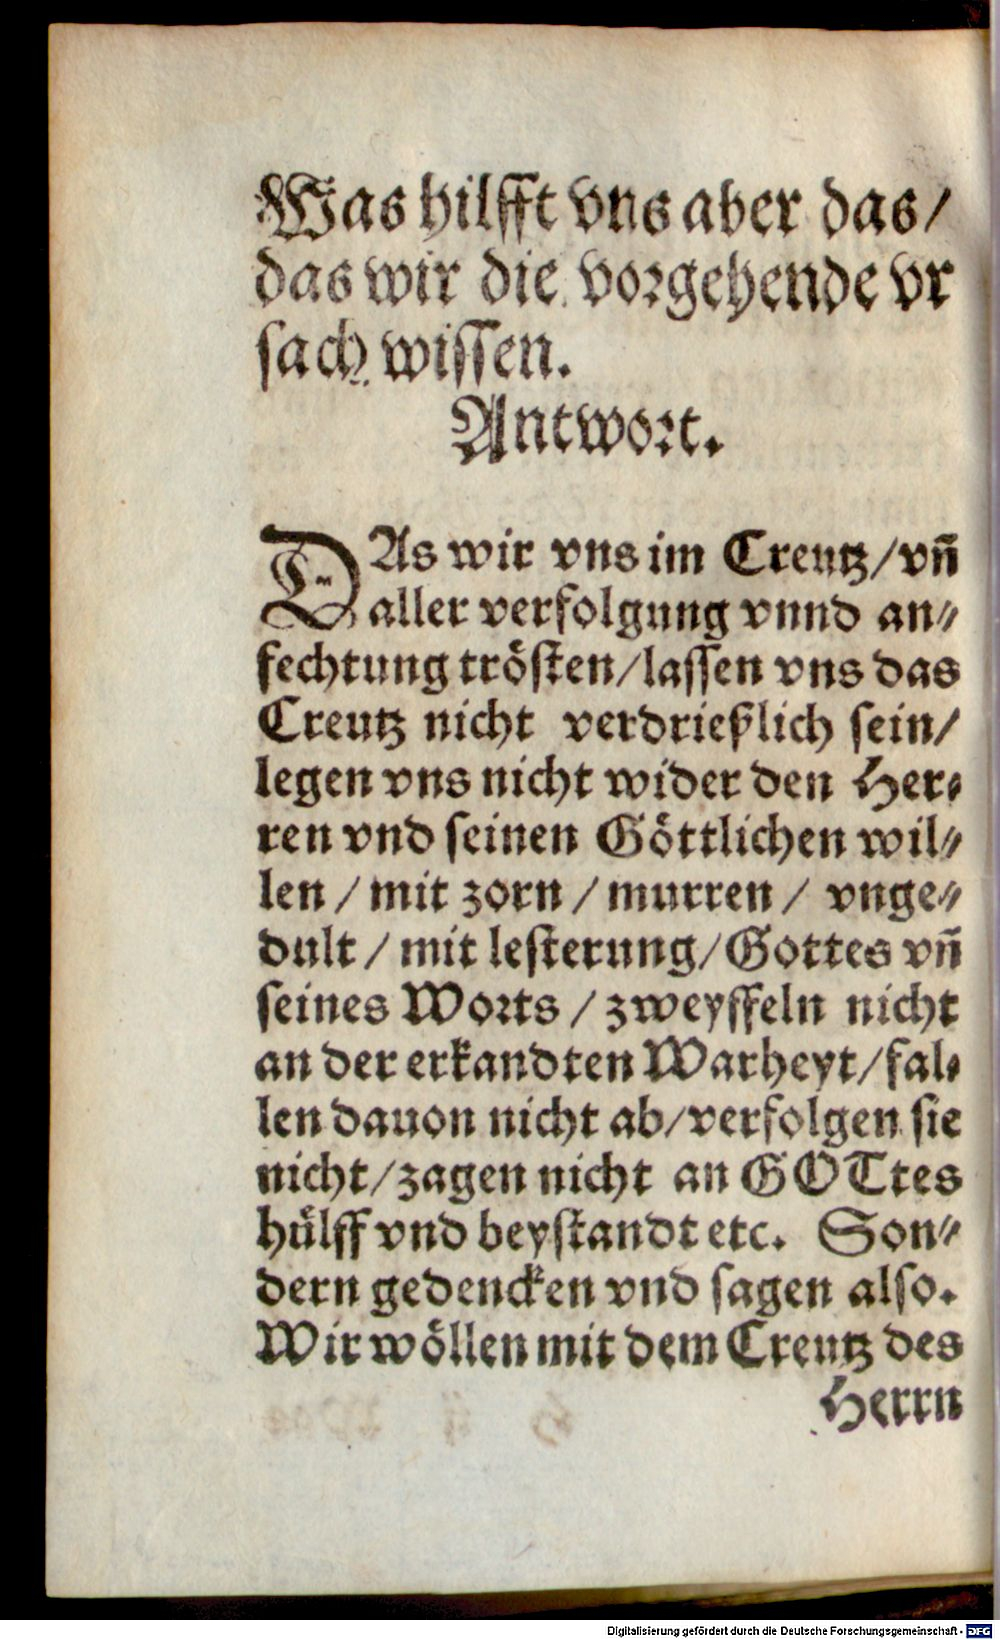 Was hilfft vns aber das/
das wir die vorgehende vr
sach wissen.
Antwort.
DAs wir vns im Creutz/vñ
aller verfolgung vnnd an⸗
fechtung trösten/lassen vns das
Creutz nicht verdrießlich sein/
legen vns nicht wider den Her⸗
ren vnd seinen Göttlichen wil⸗
len / mit zorn / murren / vnge⸗
dult / mit lesterung/Gottes vñ
seines Worts / zweyffeln nicht
an der erkandten Warheyt/fal⸗
len dauon nicht ab/verfolgen sie
nicht/zagen nicht an GOTtes
hülff vnd beystandt etc. Son⸗
dern gedencken vnd sagen also.
Wir wöllen mit dem Creutz des
Herrn
Digitalisierung gefördert durch die Deutsche Forschungsgemeinschaft - DFG